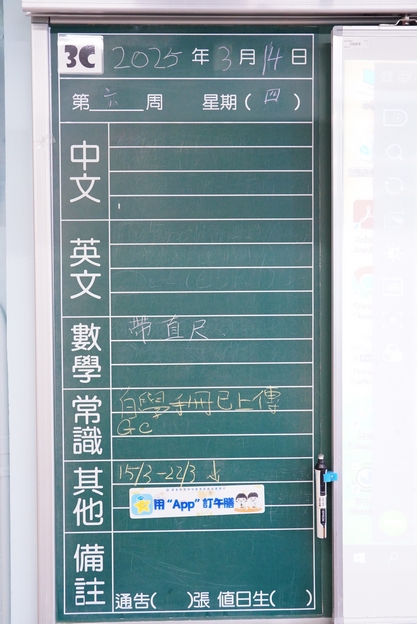 3C 2025年3月14日
第六周 星期(四)
中文
英文
數學 帶直尺
常識 自學手冊已上傳
GC
其他 15/3-22/3 ↓
用"App"訂午膳
備註
通告( )張 值日生( )